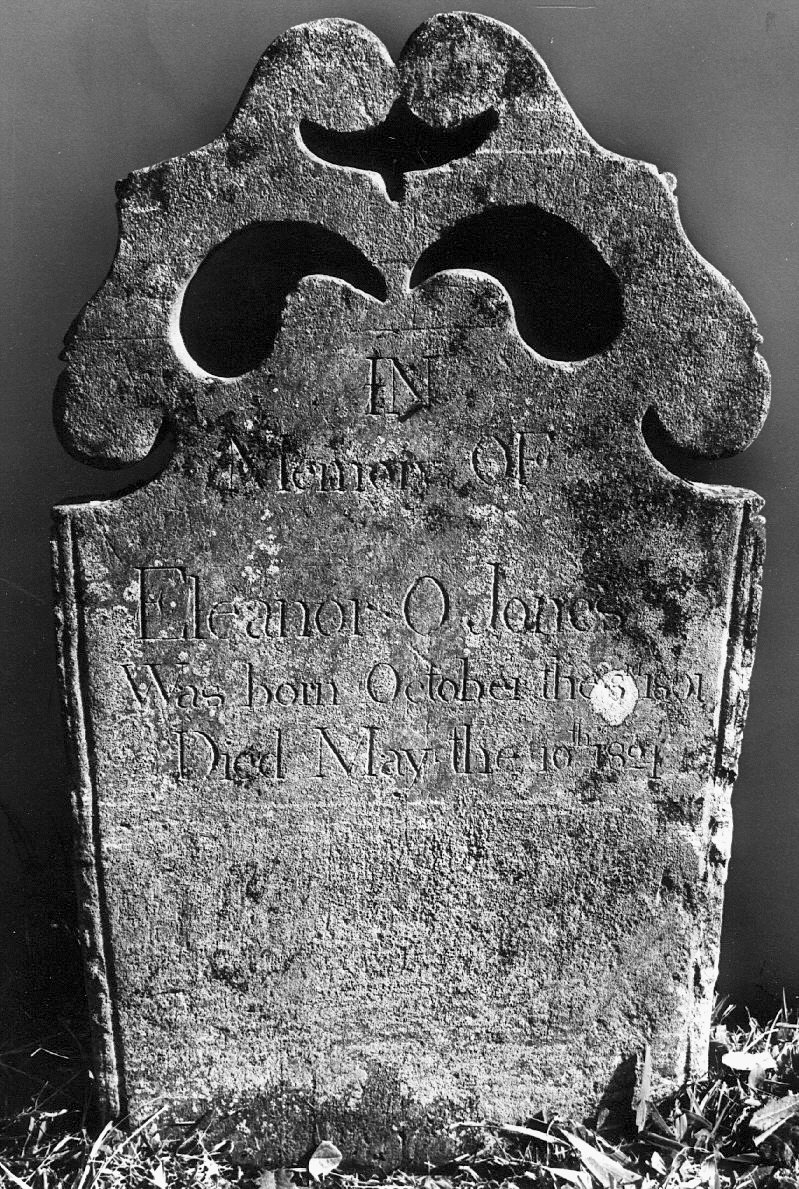 IN
Memory OF
Eleanor O Jones
Was born October the 5th 1801
Died May the 10th 1821